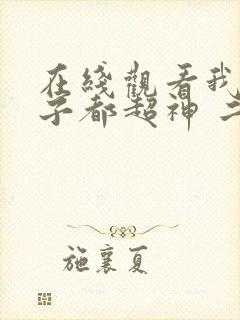 在綫觀看我
子都超神 二
施襄夏